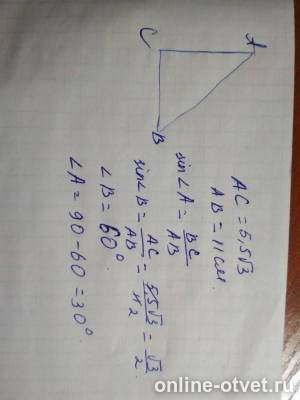 A
C
B
AC = 5,5√3
AB = 11 см.
sin∠A = BC/AB
sin∠B = AC/AB = 5,5√3/11 2 = √3/2
∠B = 60°
∠A = 90 - 60 = 30°.
online-otvet.ru